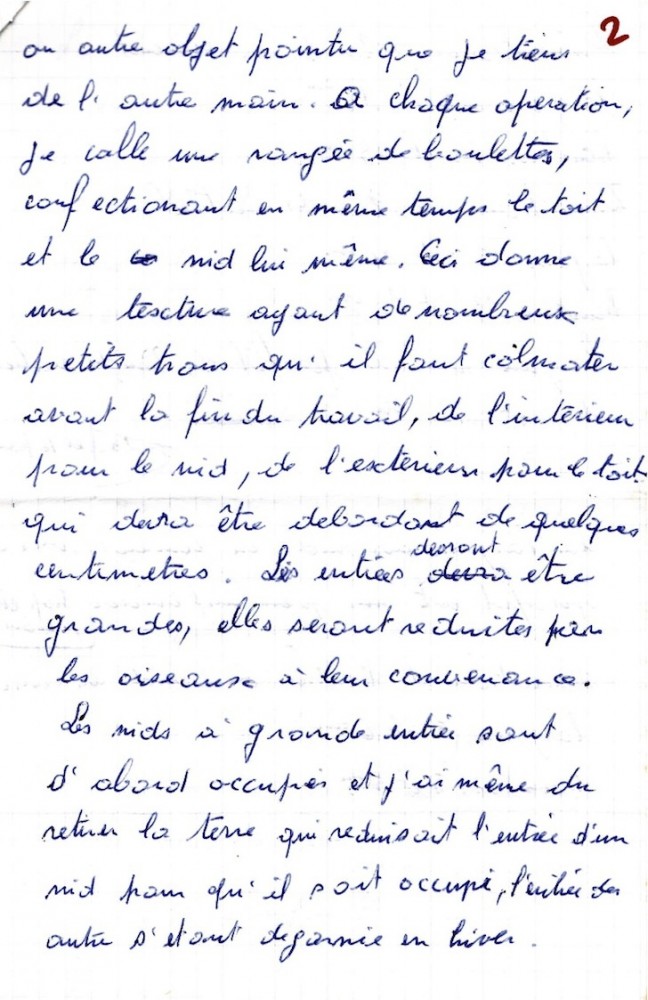 2
ou autre objet pointu que je tiens
de l'autre main. A chaque operation,
je colle une rangée de boulettes,
confectionant en même temps le toit
et le nid lui même. Ceci donne
une texture ayant de nombreux
petits trous qu'il faut colmater
avant la fin du travail, de l'intérieur
pour le nid, de l'extérieur pour le toit
qui devra être debordant de quelques
centimetres. Les entrées devront être
grandes, elles seront reduites par
les oiseaux à leur convenance.
Les nids à grande entrée sont
d'abord occupés et j'ai même du
retirer la terre qui reduisait l'entrée d'un
nid pour qu'il soit occupé, l'entrée des
autre s'etant degarnie en hiver.